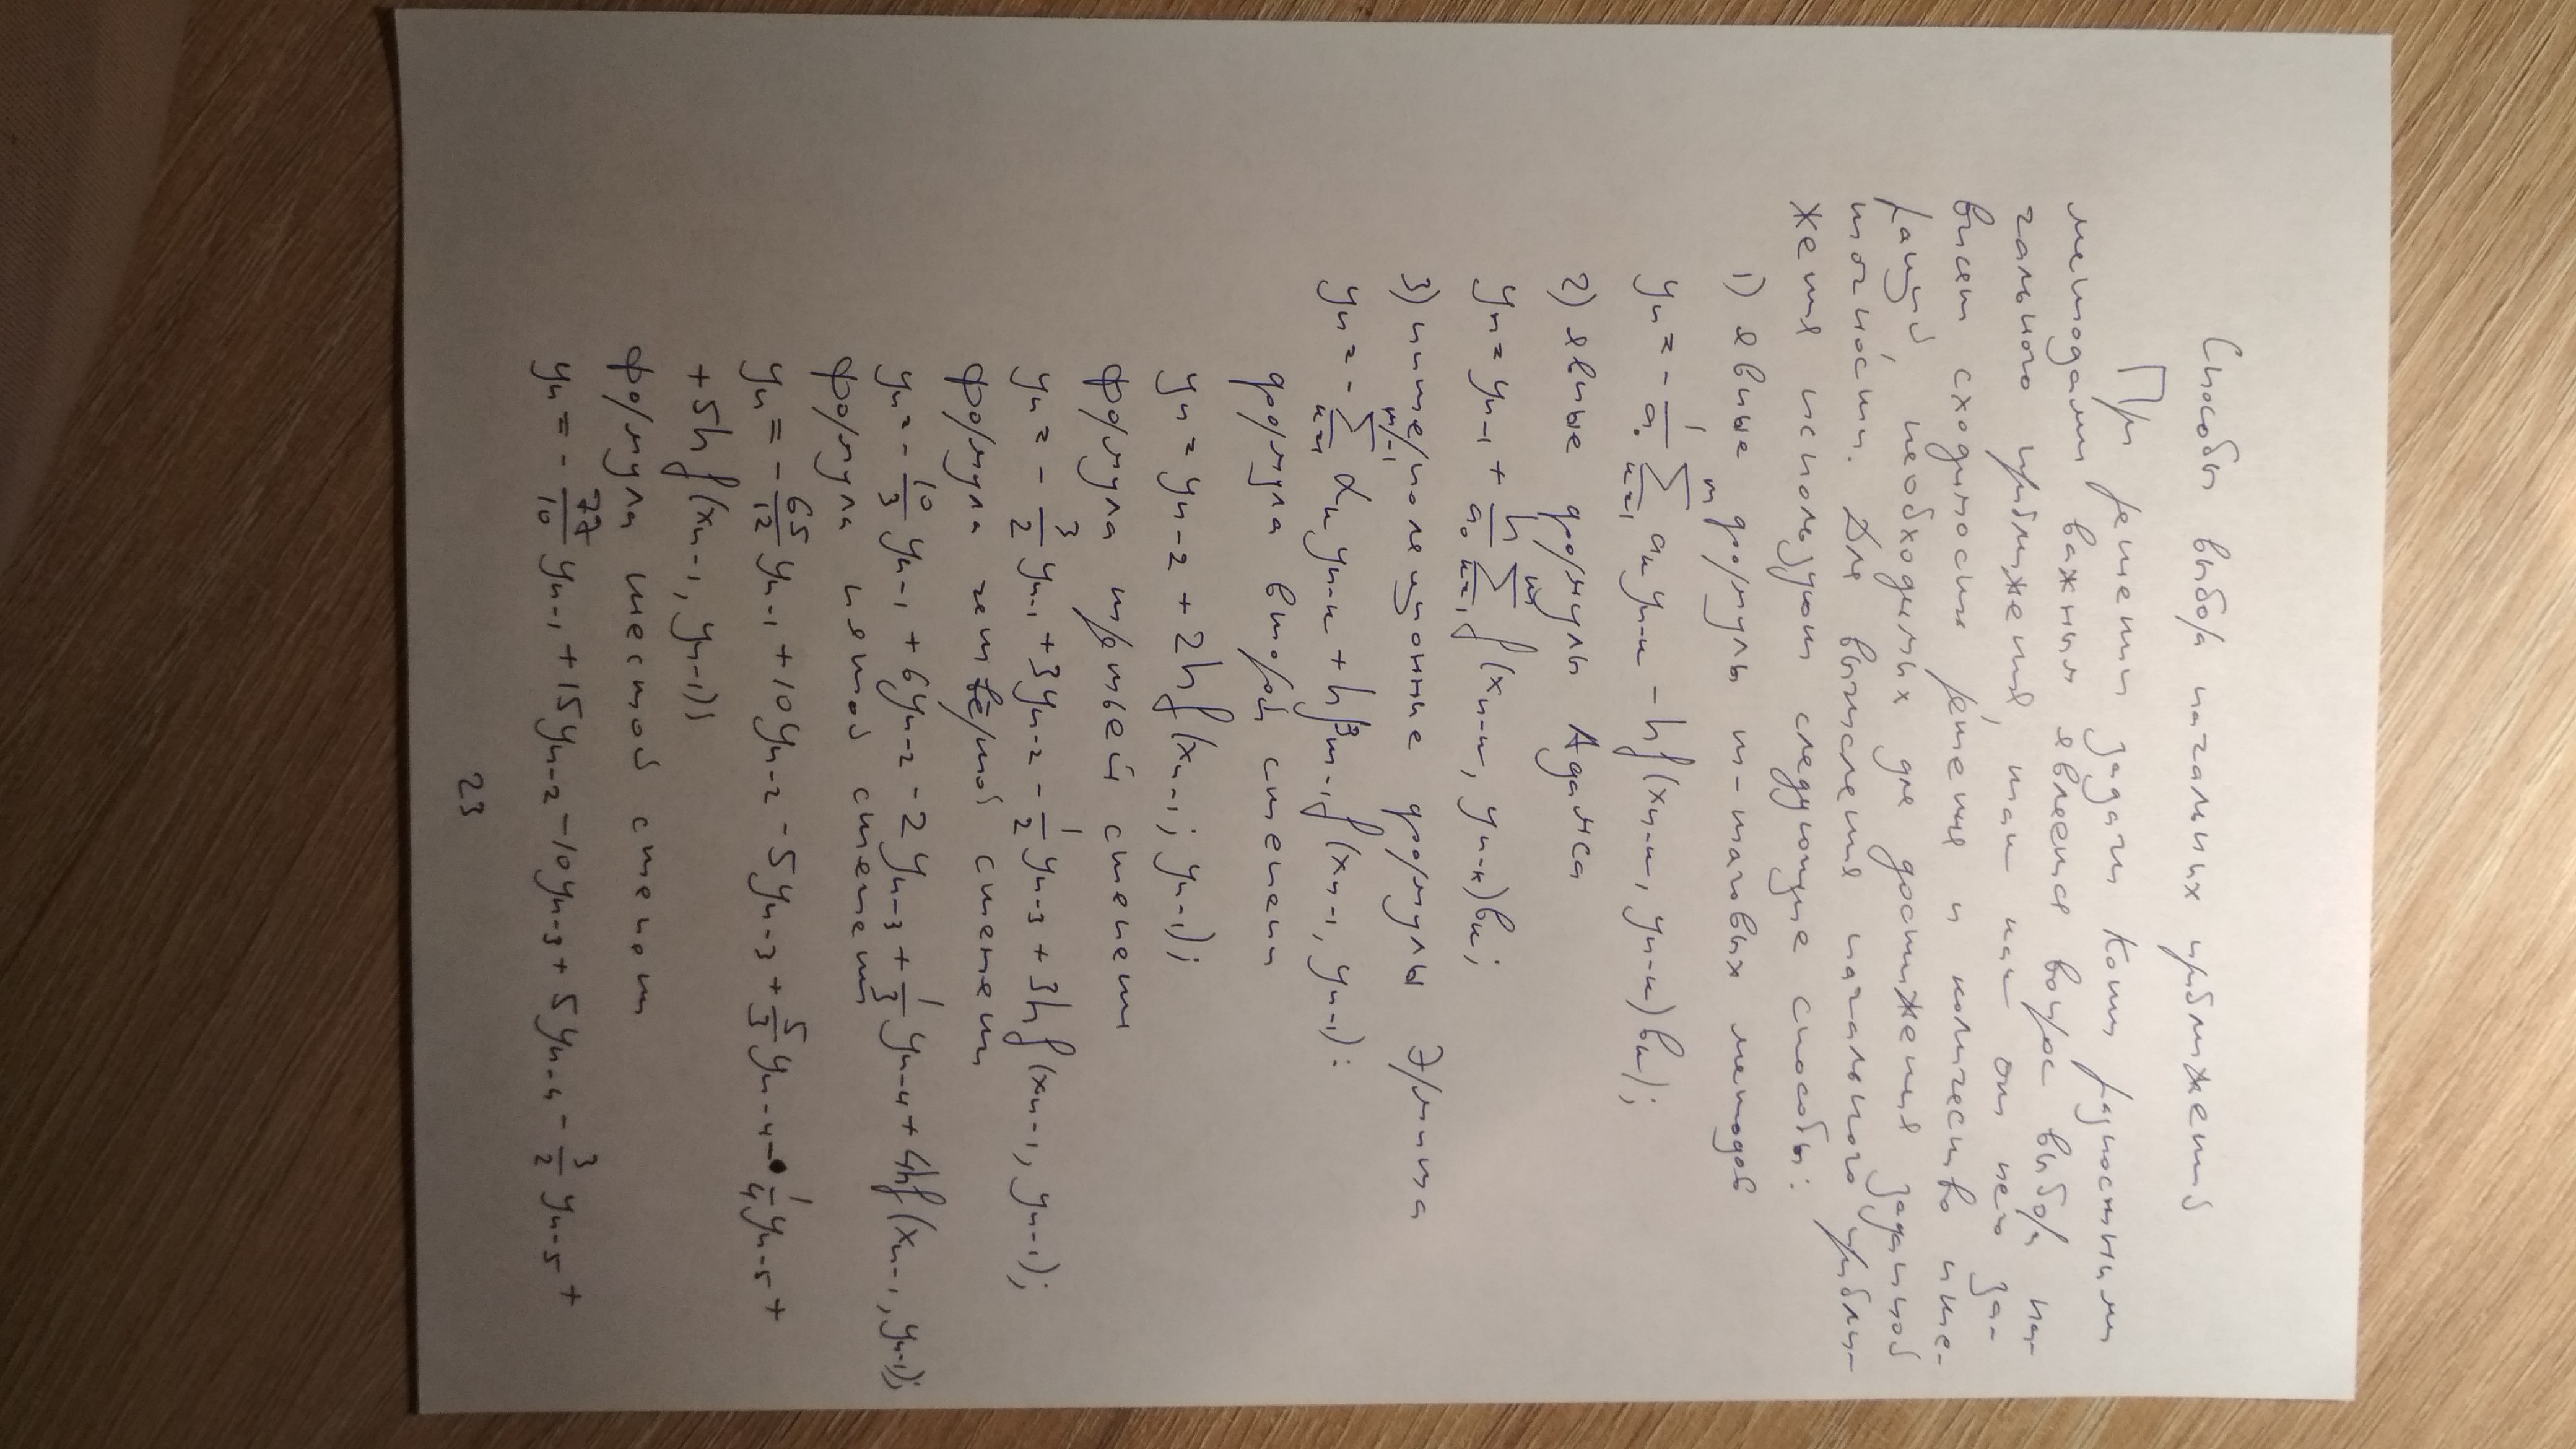 Способы выбора начальных приближений
При решении задачи Коши разностными
методами важным является вопрос выбора на-
чального приближения, так как от него за-
висит сходимость решения и количество ите-
раций, необходимых для достижения заданной
точности. Для вычисления начального прибли-
жения используют следующие способы:
1) явные формулы m-шаговых методов
yₙ = - 1/a₀ ∑ₖ₌₁ᵐ aₖ yₙ₋ₖ - hf(xₙ₋ₖ, yₙ₋ₖ)bₖ);
2) явные формулы Адамса
yₙ = yₙ₋₁ + h/a₀ ∑ₖ₌₁ᵐ f(xₙ₋ₖ, yₙ₋ₖ)bₖ;
3) интерполяционные формулы Эрмита
yₙ = - ∑ₖ₌₁ᵐ⁻¹ αₖ yₙ₋ₖ + hβₘ₋₁f(xₙ₋₁, yₙ₋₁):
формула второй степени
yₙ = yₙ₋₂ + 2hf(xₙ₋₁; yₙ₋₁);
формула третьей степени
yₙ = - 3/2 yₙ₋₁ + 3yₙ₋₂ - 1/2 yₙ₋₃ + 3hf(xₙ₋₁, yₙ₋₁);
формула четвёртой степени
yₙ = - 10/3 yₙ₋₁ + 6yₙ₋₂ - 2yₙ₋₃ + 1/3 yₙ₋₄ + 4hf(xₙ₋₁, yₙ₋₁);
формула пятой степени
yₙ = - 65/12 yₙ₋₁ + 10yₙ₋₂ - 5yₙ₋₃ + 5/3 yₙ₋₄ - 1/4 yₙ₋₅ +
+ 5hf(xₙ₋₁, yₙ₋₁);
формула шестой степени
yₙ = - 77/10 yₙ₋₁ + 15yₙ₋₂ - 10yₙ₋₃ + 5yₙ₋₄ - 3/2 yₙ₋₅ +
23